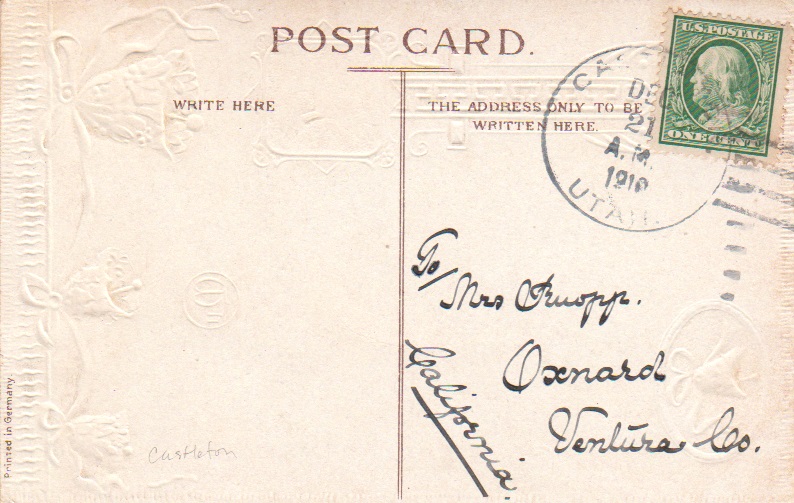 POST CARD.
WRITE HERE
THE ADDRESS ONLY TO BE
WRITTEN HERE.
U.S. POSTAGE
ONE CENT
DEC
21
A.M.
1910
UTAH.
To/
Mrs Ruopp.
Oxnard
Ventura Co.
California.
Castleton
Printed in Germany.